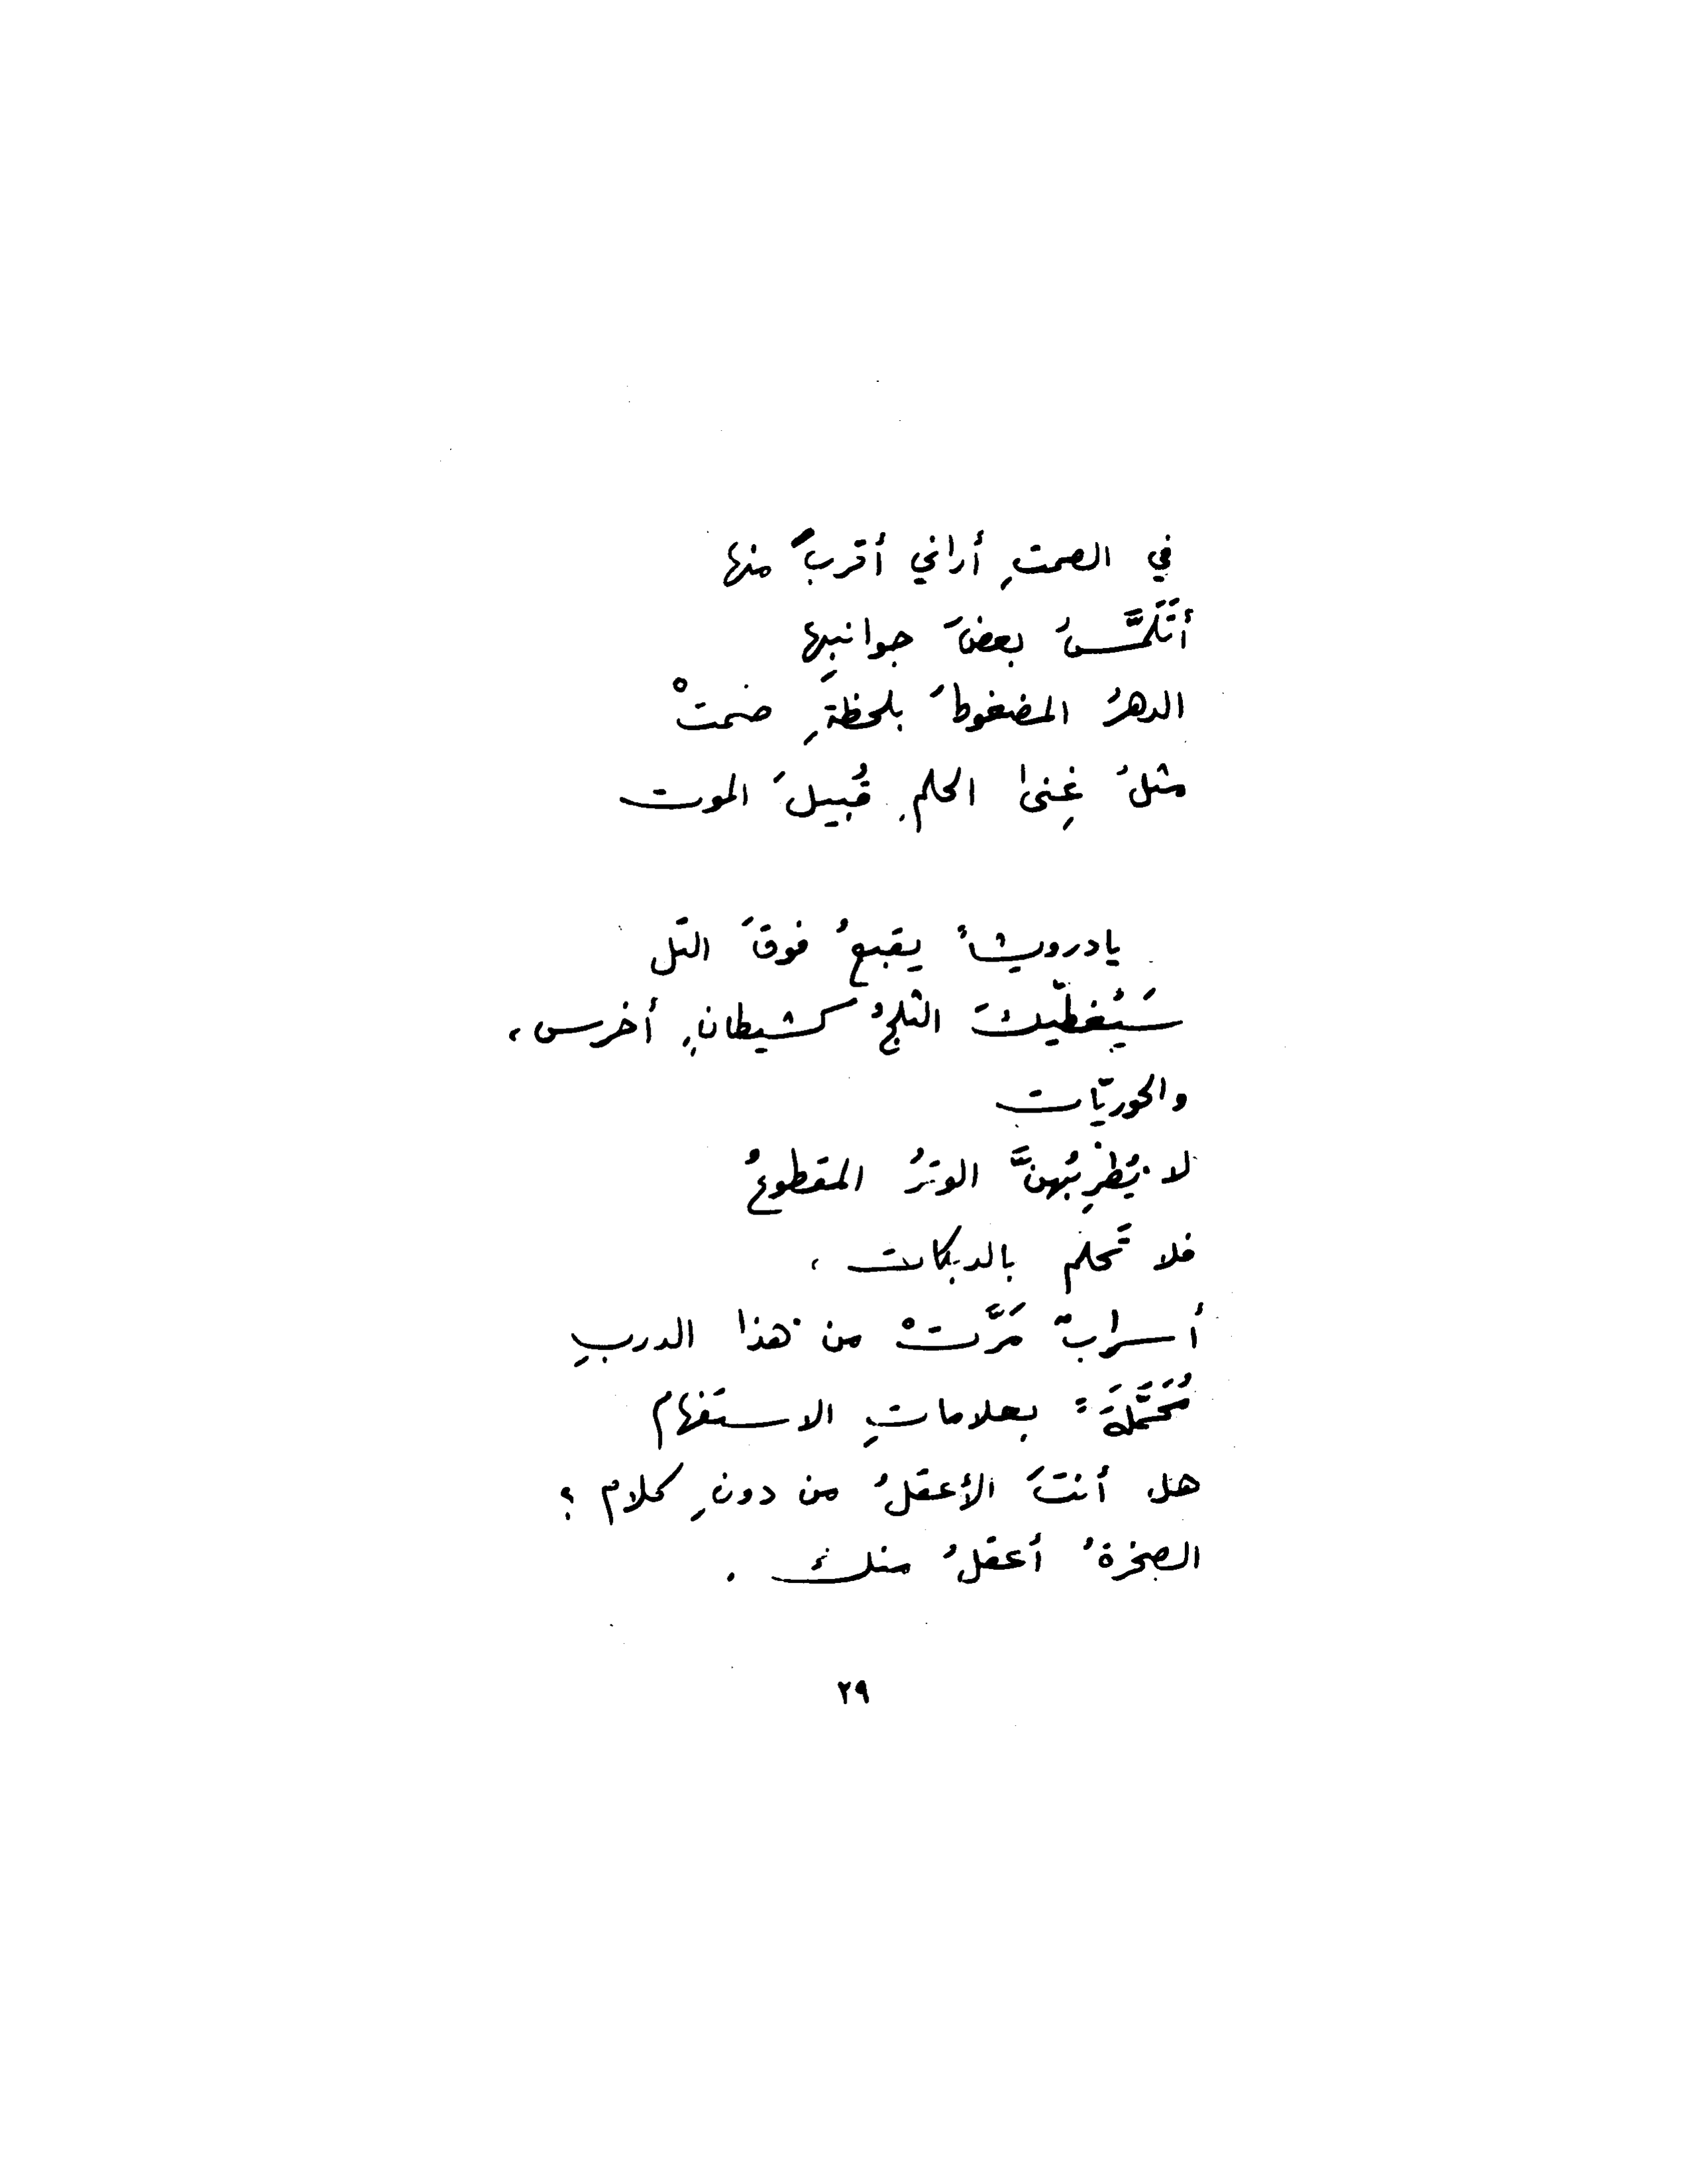 في الصمتِ أراني أقربَ منها
أتَلَمَّسُ بعضَ جوانبِها
الدهرُ المضغوطُ بلحظةِ صمتْ
مثلُ غِنى الحلمِ قُبيلَ الموت
يا درويشاً يقبعُ فوقَ التل
سَيُغطّيكَ الثلجُ كشيطانٍ أخرس،
والحوريّات
لا يُطْرِبُهنَّ الوترُ المقطوعُ
فلا تَحلم بالدبكات،
أسرابٌ مَرَّتْ من هذا الدربِ
مُحَمَّلَةً بعلاماتِ الاستفهام
هل أنتَ الأعقلُ من دونِ كلام ؟
الصخرةُ أعقلُ منك .
٢٩